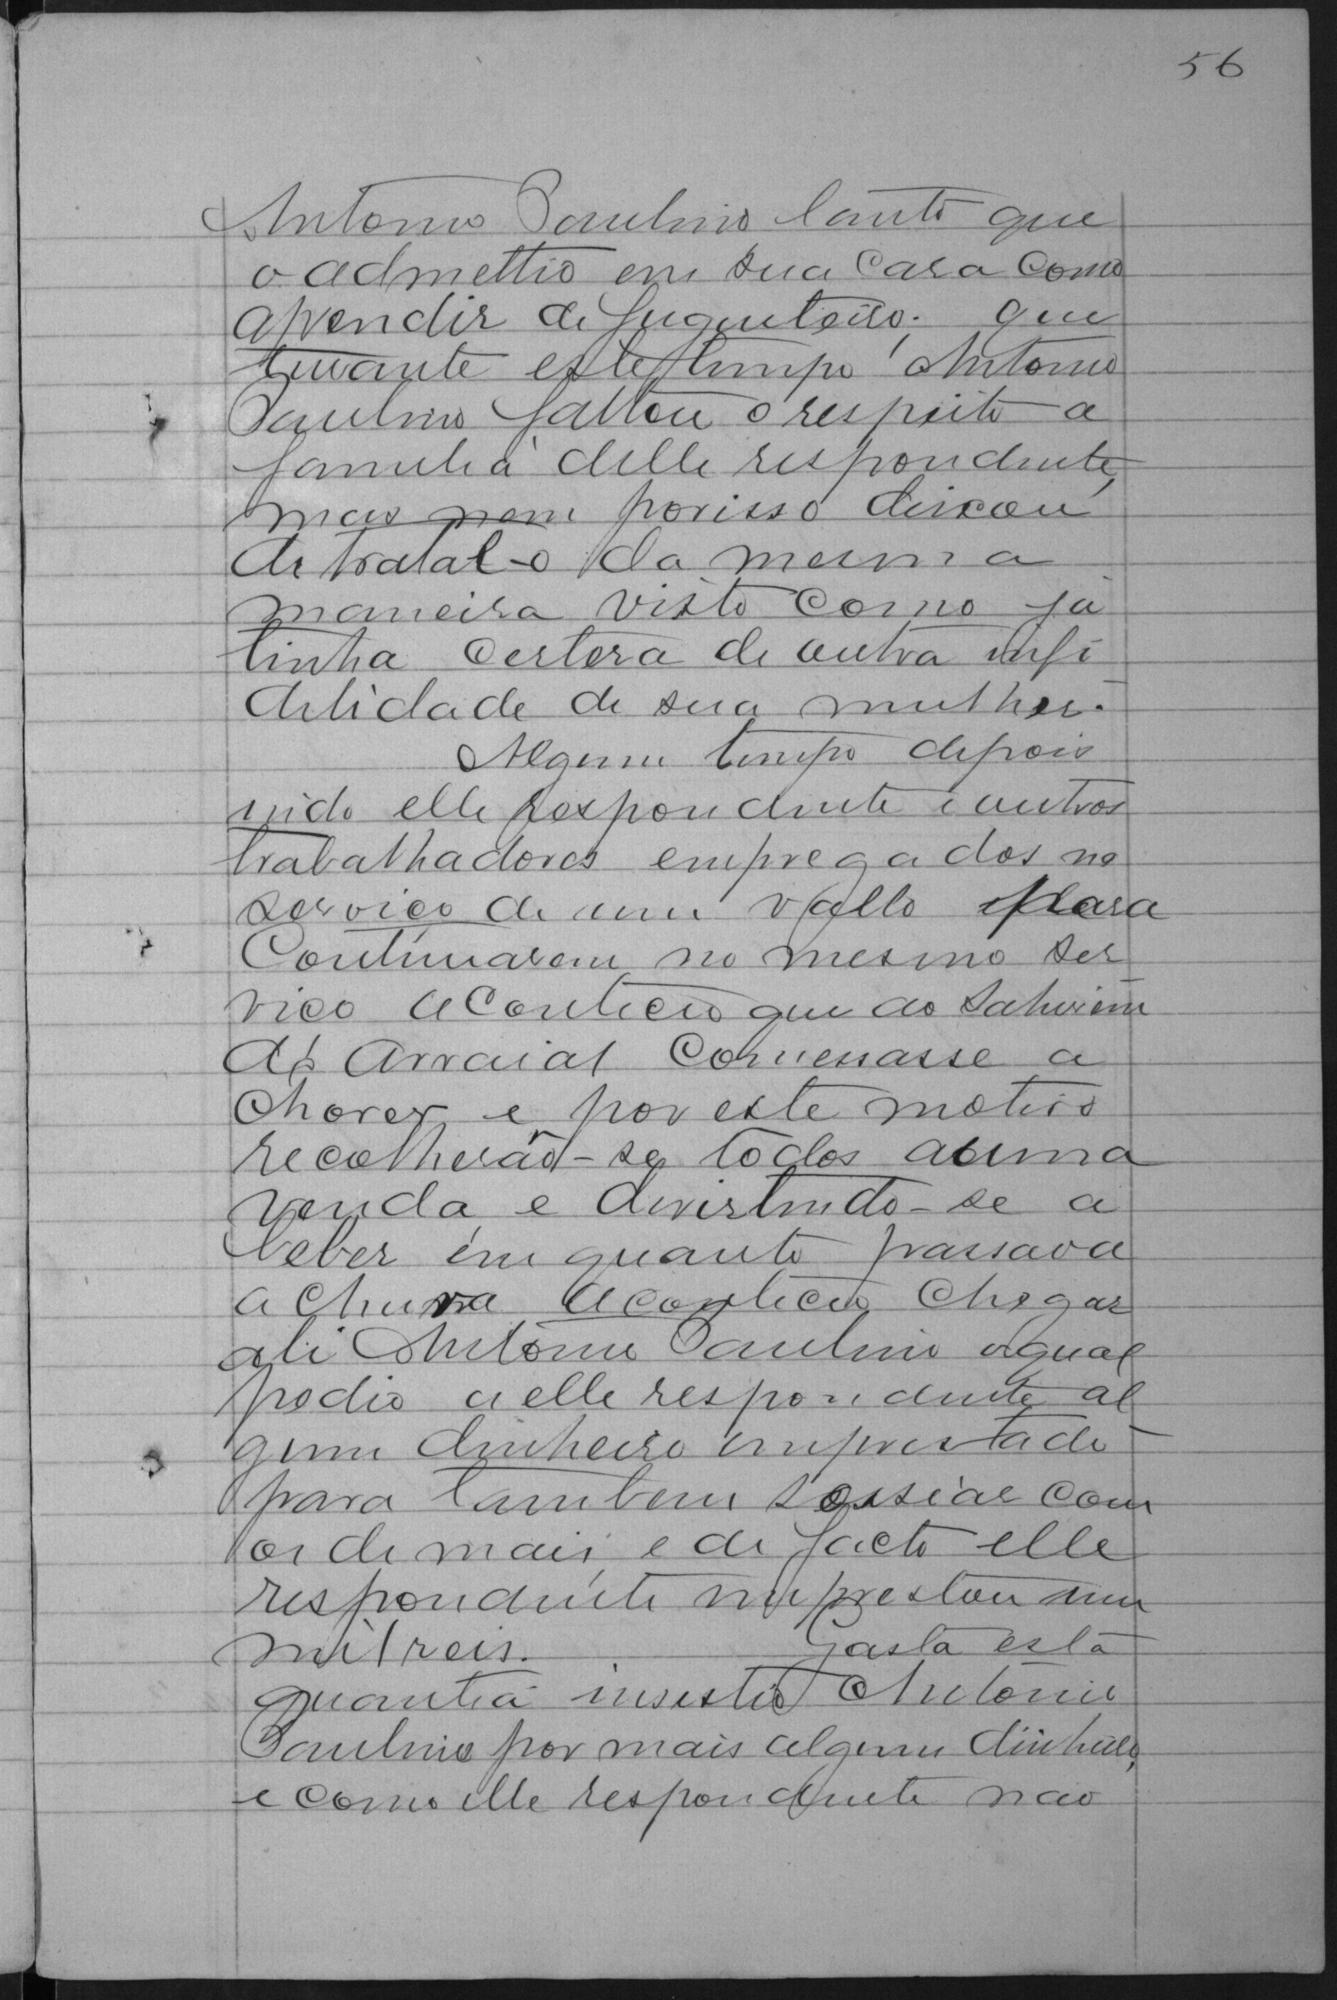 56
Antonio Paulino tanto que
o admettio em sua casa como
aprendiz de fugueteiro; que
durante este tempo Antonio
Paulino faltou o respeito a
familia delle respondente,
mas nem porisso deixou
de tratal-o da mesma
maneira visto como já
tinha certesa de outra infi
delidade de sua mulher.
Algum tempo depois
indo elle respondente e outros
trabalhadores empregados no
serviço de um vallo para
continuarem no mesmo ser
viço aconteceo que ao sahirem
do arraial comessasse a
chover e por este motivo
recolherão-se todos a uma
venda e devirtindo-se a
beber emquanto passava
a chuva aconteceo chegar
ali Antonio Paulino o qual
pedio a elle respondente al
gum dinheiro emprestado
para tambem sossiar com
os de mais, e de facto elle
respondente emprestou um
mil reis. Gasta esta
quantia insistio Antonio
Paulino por mais algum dinheiro,
e como elle respondente não